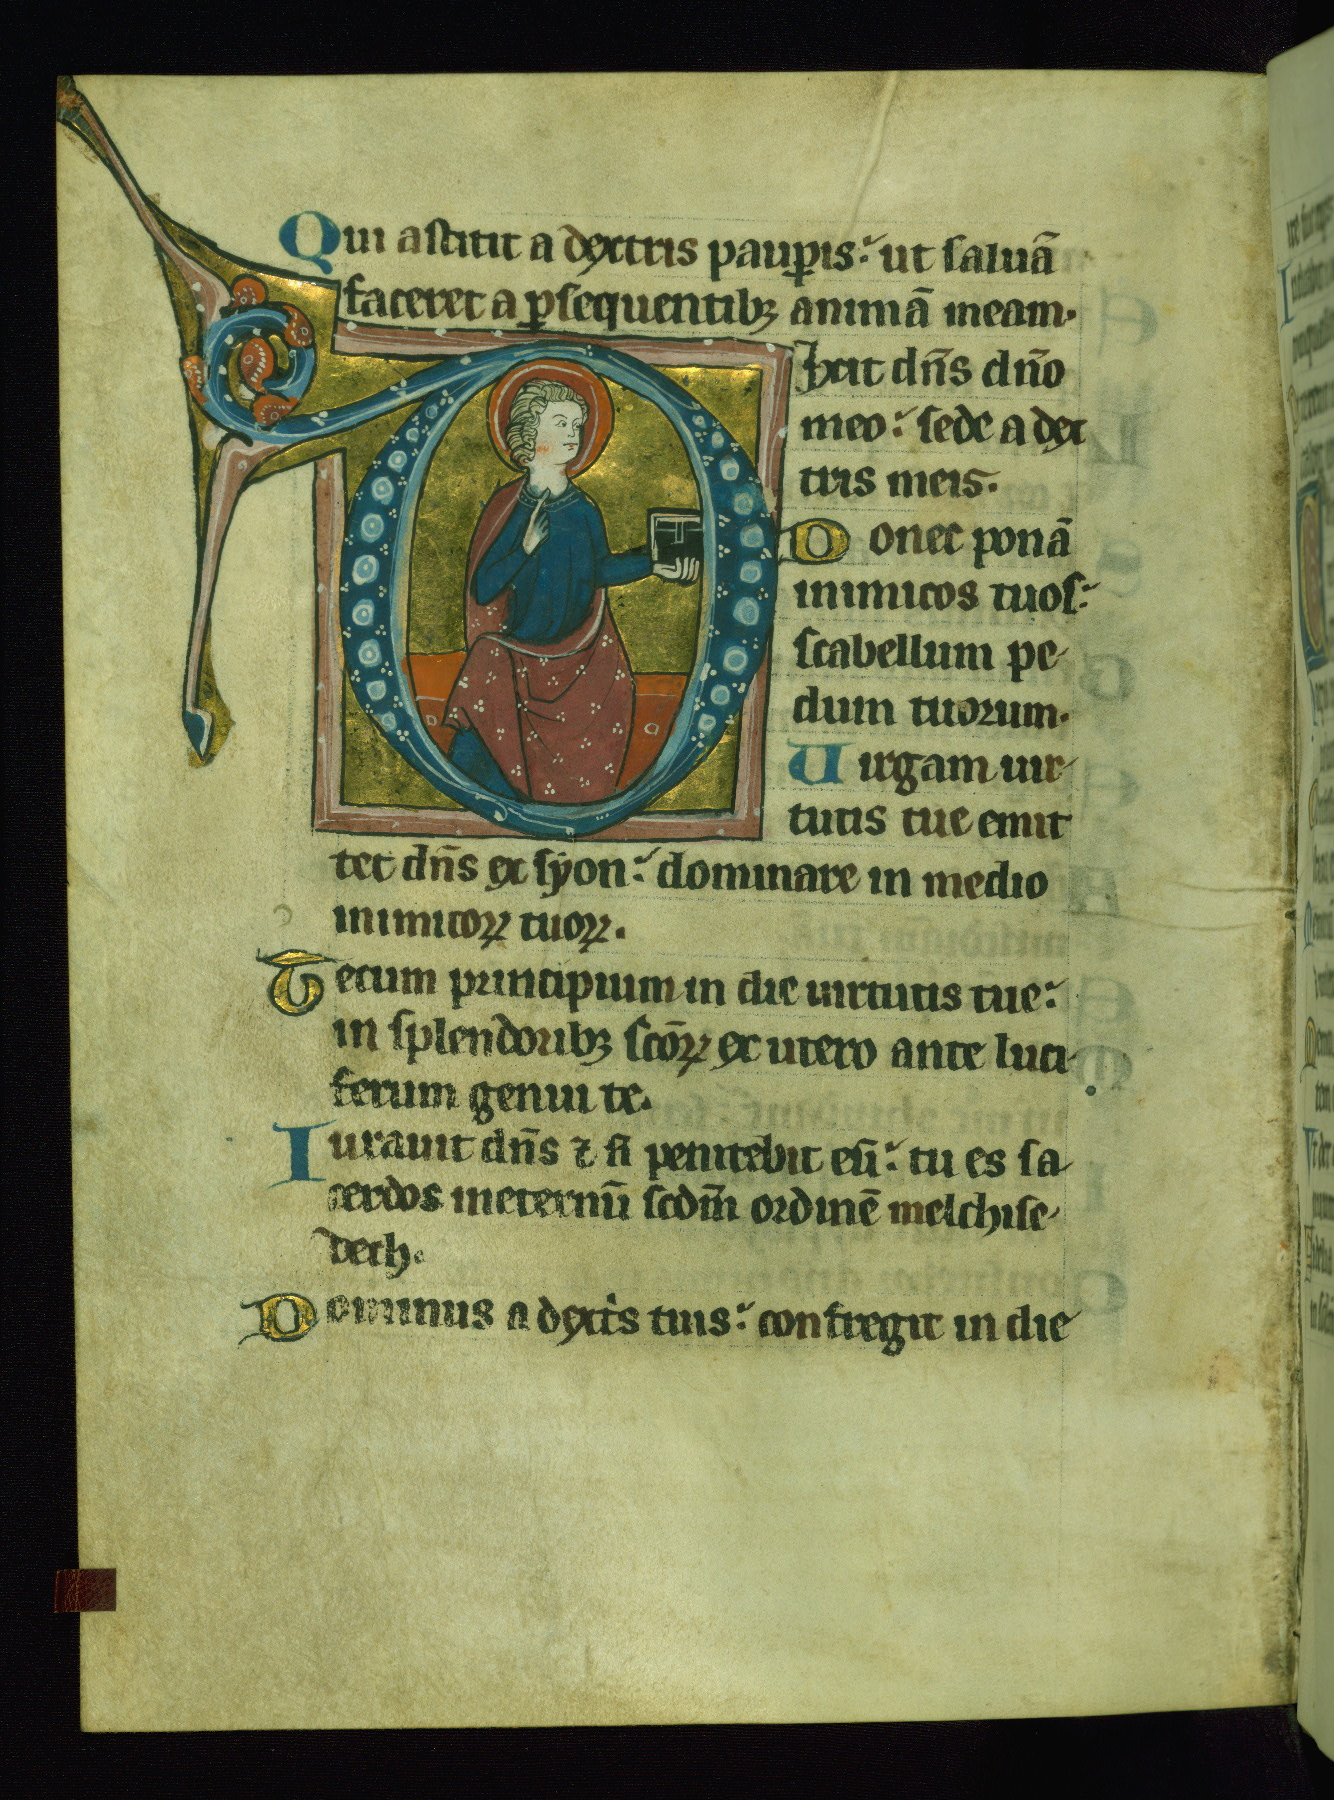 Qui astitit a dextris paup̲is: ut saluā
faceret a p̲sequentibꝫ animā meam.
Dixit dn̄s dn̄o
meo: sede a dex
tris meis.
Donec ponā
inimicos tuos:
scabellum pe-
dum tuorum.
Uirgam uir-
tutis tue emit
tet dn̄s ex syon: dominare in medio
inimicoꝝ tuoꝝ.
Tecum principium in die uirtutis tue:
in splendoribꝫ sc̄oꝝ ex utero ante luci-
ferum genui te.
Iurauit dn̄s ⁊ n̄ penitebit eū: tu es sa-
cerdos ineternū scdm̄ ordinē melchise-
dech.
Dominus a dextis tuis: confregit in die